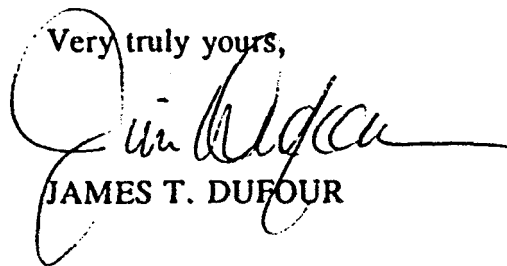 Very truly yours,
Jim Dufour
JAMES T. DUFOUR